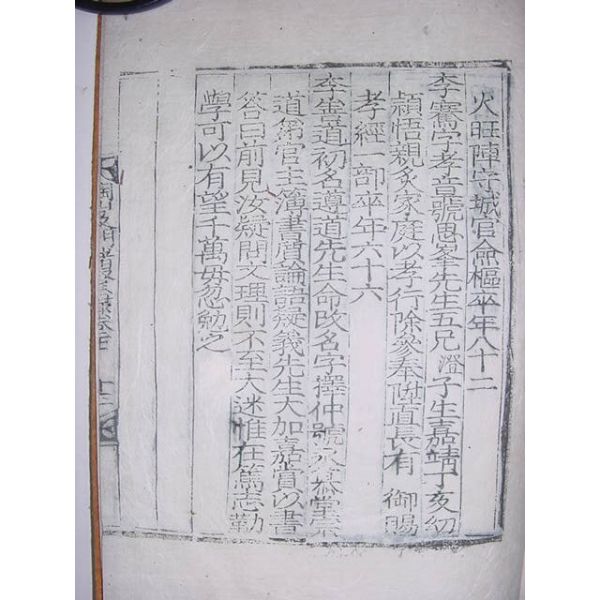 火旺陣守城官僉樞卒年八十二
李騫字孝音號思峯先生五兄澄子生嘉靖丁亥幼
穎悟親炙家庭以孝行除參奉陞直長有 御賜
孝經一部卒年六十六
李善道初名遵道先生命改名字擇仲號 養堂宗
道弟官主簿書質論語疑義先生大加嘉賞以書
答曰前見汝疑問文理則不至大迷惟在篤志勤
學可以有望千萬毋忽勉之
陶山及門諸賢錄卷